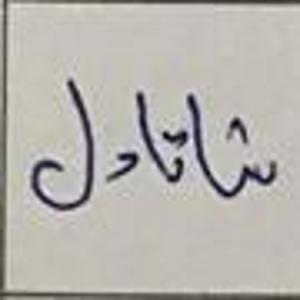 شاتادل